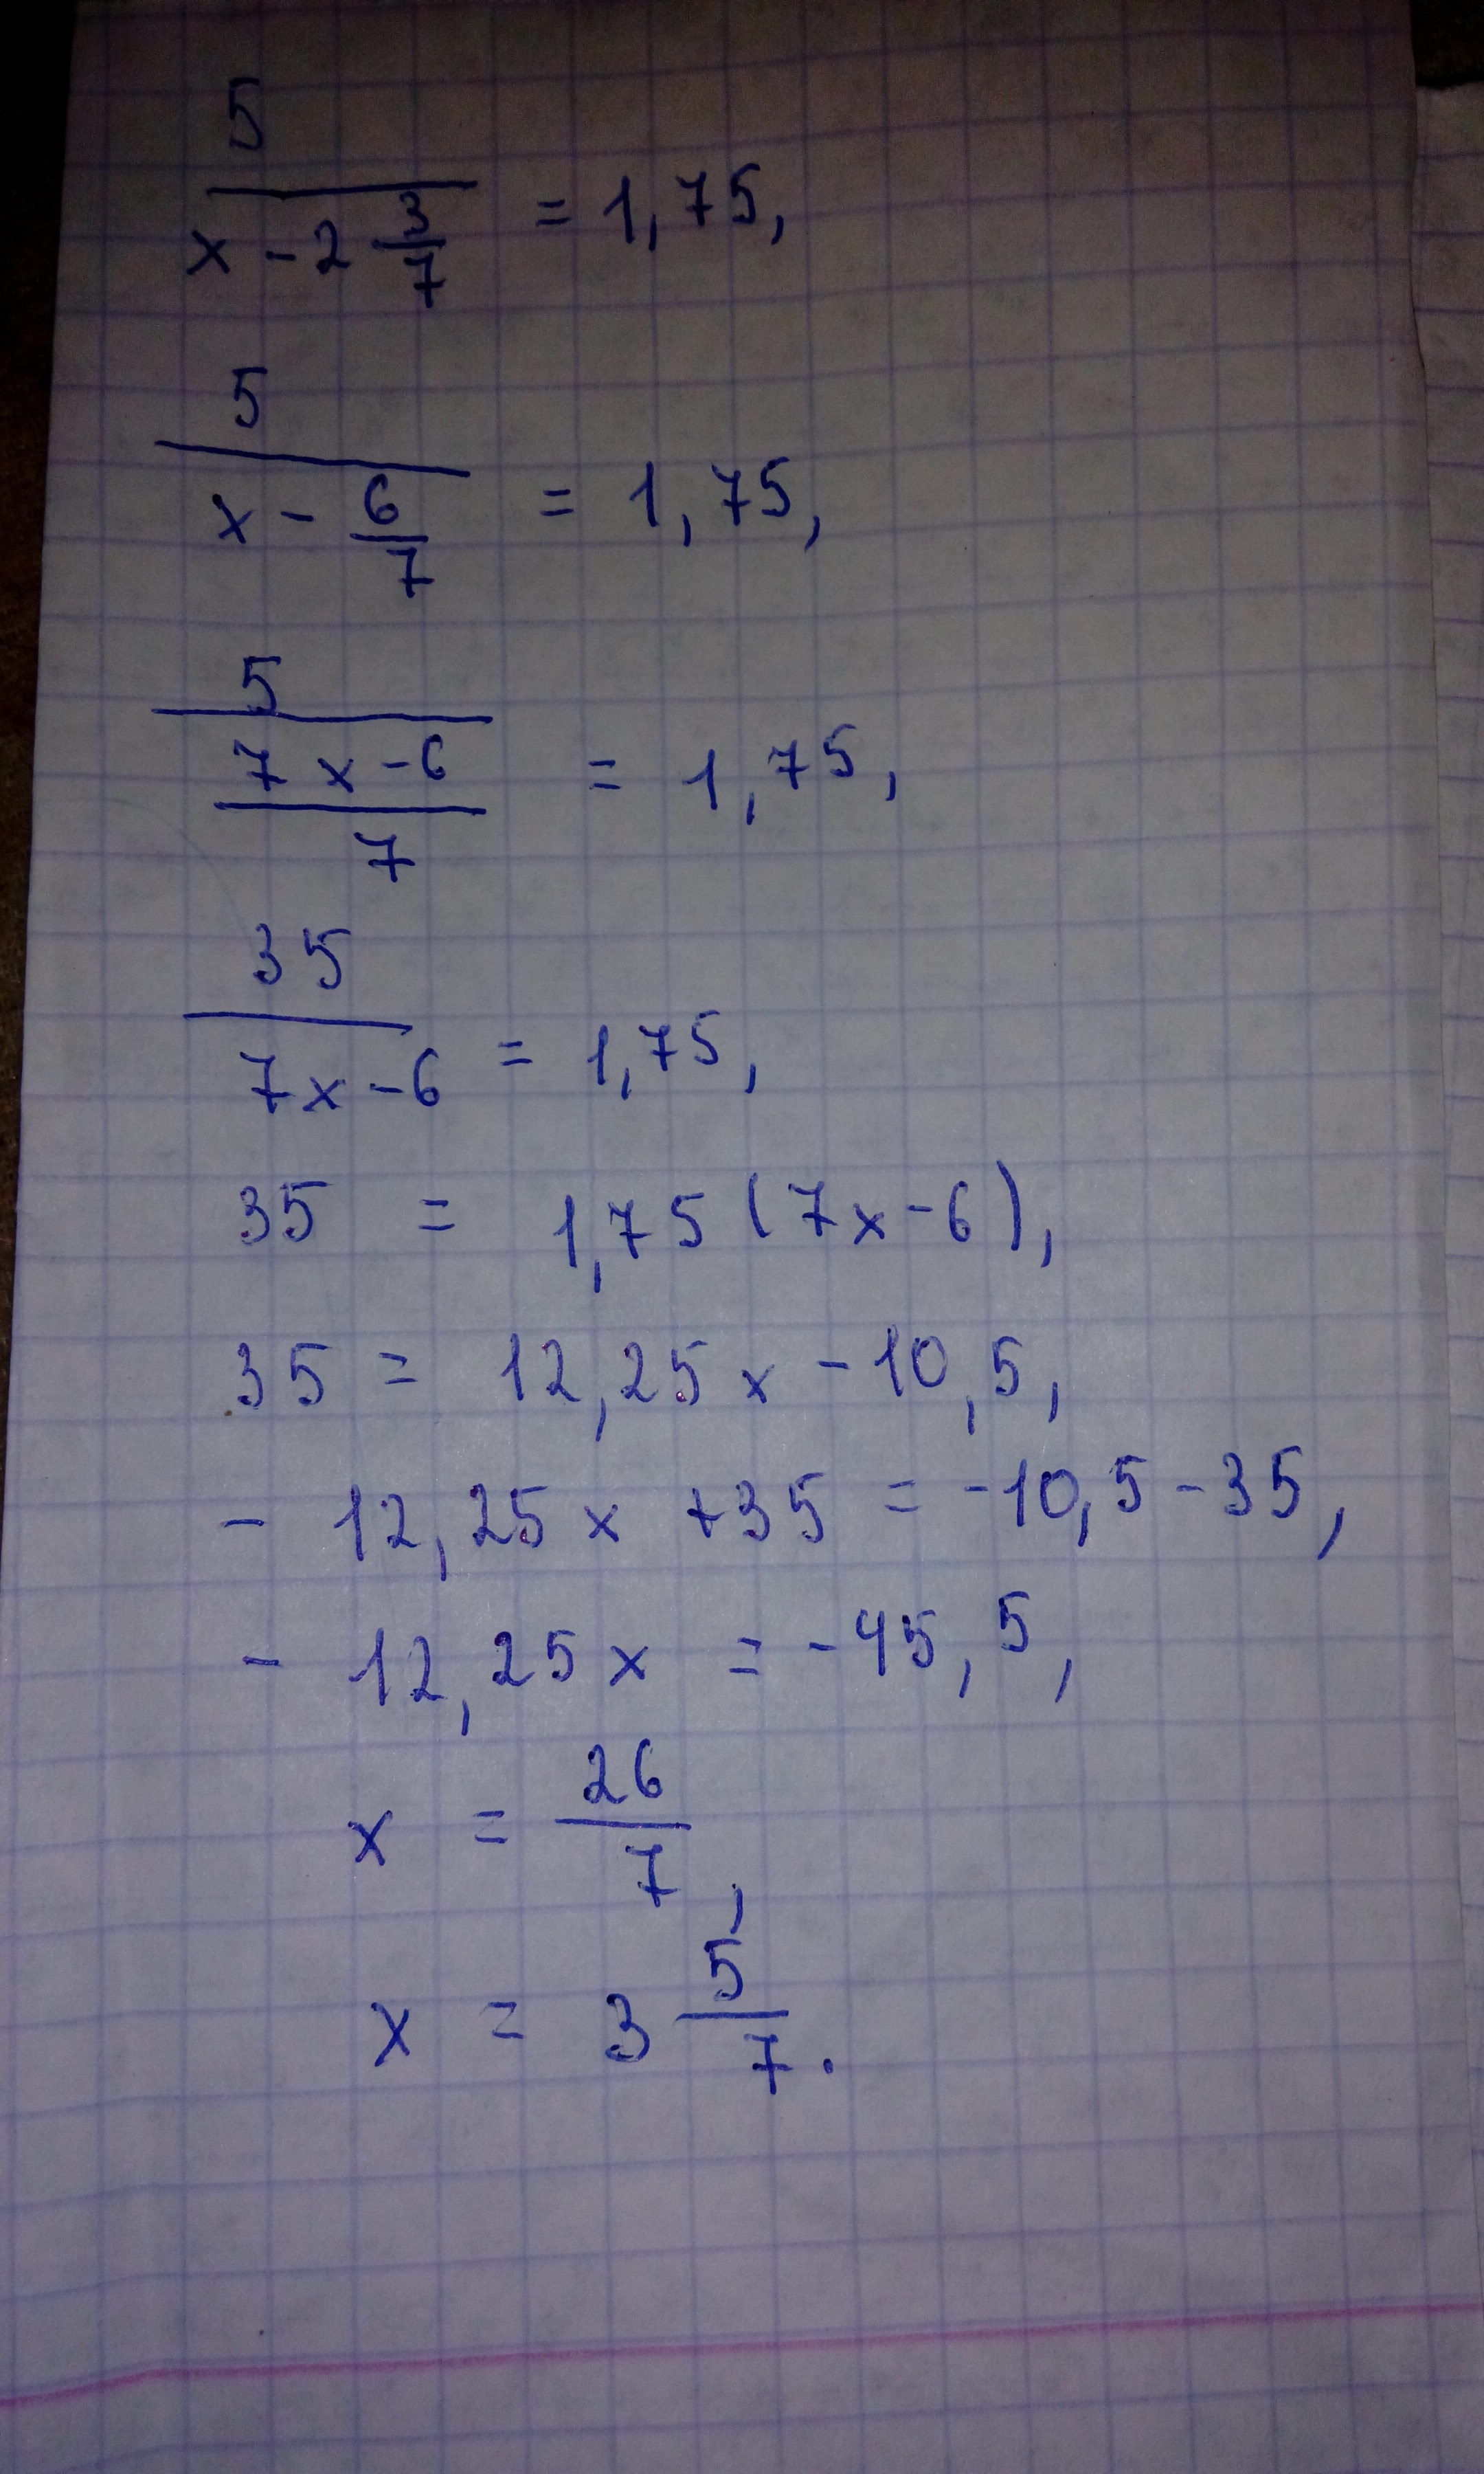 5/(x - 2 3/7) = 1,75,
5/(x - 6/7) = 1,75,
5/((7x - 6)/7) = 1,75,
35/(7x - 6) = 1,75,
35 = 1,75(7x - 6),
35 = 12,25x - 10,5,
- 12,25x + 35 = -10,5 - 35,
- 12,25x = -45,5,
x = 26/7,
x = 3 5/7.